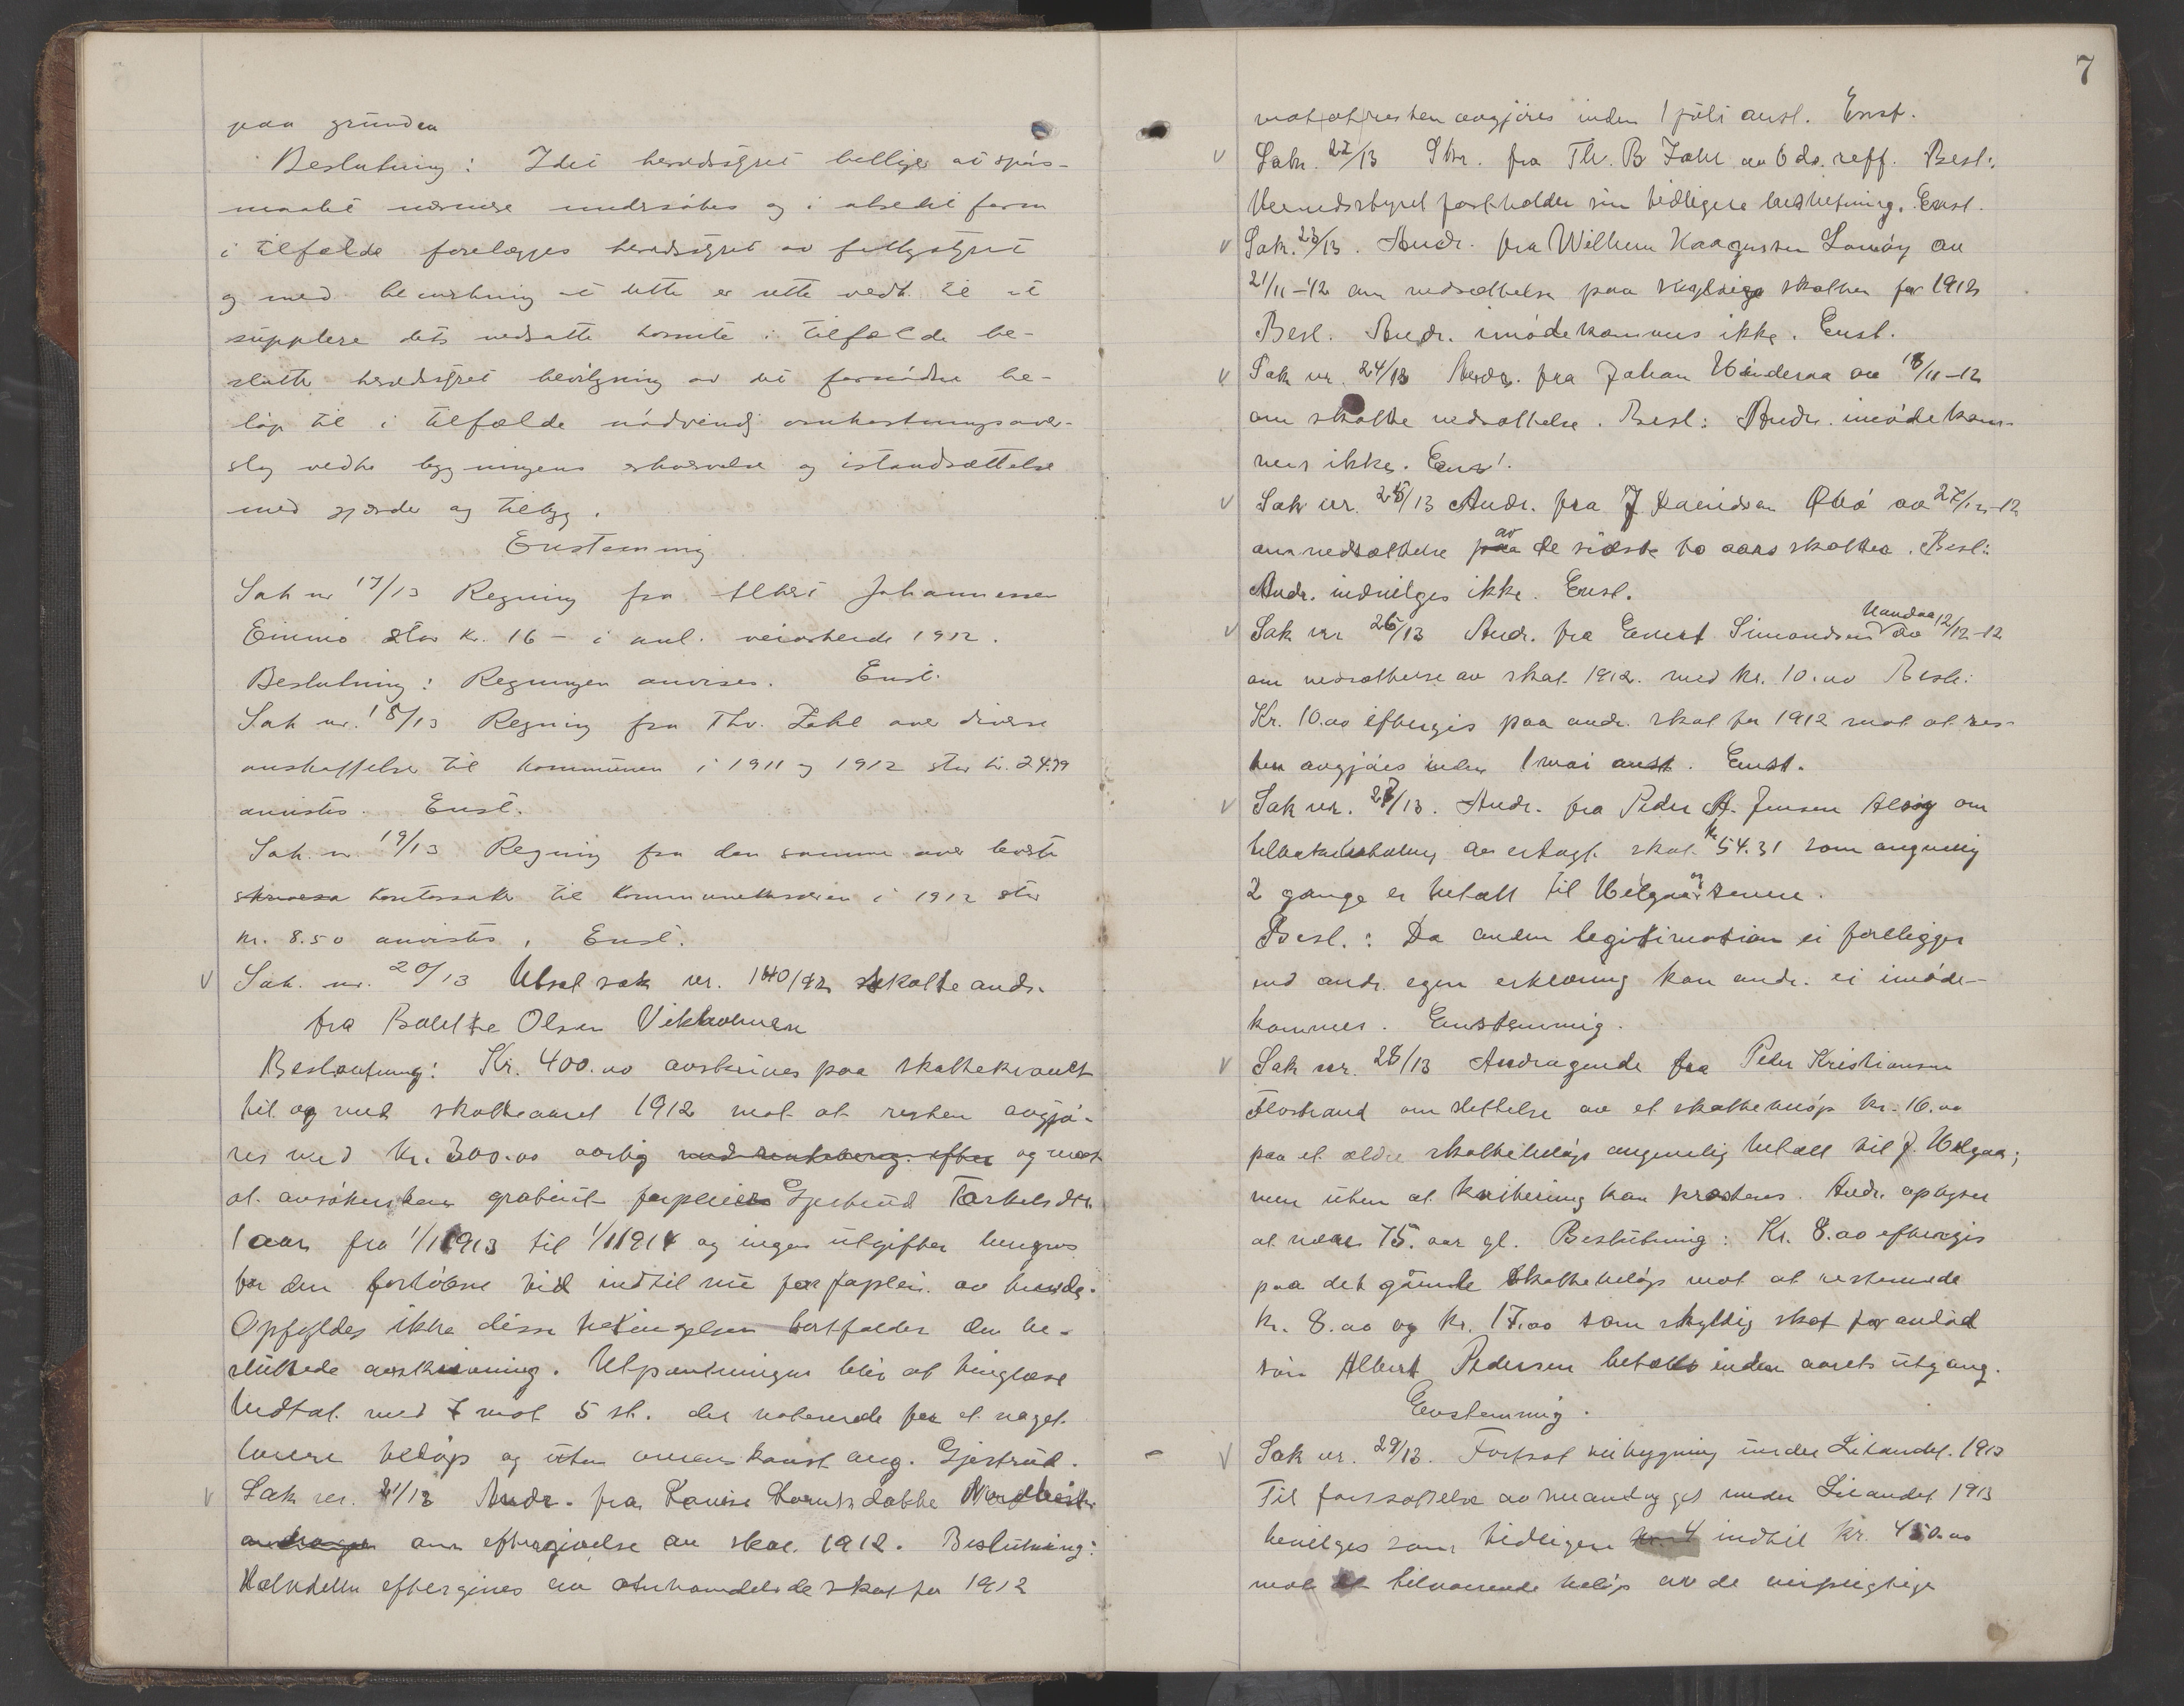 paa grunden
Beslutning: Idet herredsstyret billiger at spörs-
maalet nærmere undersökes og i alsidit form
i tilfælde forelægges herredsstyret av fattigstyret
og med bemerkning at dette er rette vedk. til at
supplere dets nedsatte komite i tilfælde be-
slutter herredsstyret bevilgning av det fornödne be-
löp til i tilfælde nödvendig omkostningsover-
slag vedk. bygningens erhvervelse og istandsættelse
med gjærde og tilbyg.
Enstemmig
Sak nr 17/13 Regning fra Albert Johannessen
stor Kr. 16 – i anl. veiarbeide 1912.
Beslutning: Regningen anvises. Enst.
Sak nr. 18/13 Regning fra Thv. Zahl over diverse
anskaffelse til kommunen i 1911 og 1912 stor kr. 24.79
anvistes. Enst.
Sak. nr 19/13 Regning fra den samme over leverte
kontorsaker til kommunekasseren i 1912 stor
kr. 8.50 anvistes. Enst.
V Sak. nr. 20/13 Utsat sak nr. 140/12 skatte andr.
fra Bolette Olsen Vikholmen
Beslutning: Kr. 400.00 avskrives paa skattekravet
til og med skatteaaret 1912 mot at resten avgjö-
res med Kr. 300.00 aarlig med renteberegn. efter og mot
at ansökersken gratis forpleier Gjertrud Torkelsdtr.
1 aar fra 1/1 1913 til 1/1 1914 og ingen utgifter beregnes
for den forlöbne tid indtil nu for forplein. av hende.
Opfyldes ikke disse betingelser bortfalder den be-
sluttede avskrivning. Utpantningen blir at tinglæse
Vedtat med 7 mot 5 st. der voterede for et noget
lavere belöp og uten overenskomst ang. Gjertrud.
V Sak nr. 21/13 Andr. fra Lovise
andrager om eftergivelse av skat 1912. Beslutning:
Halvdelen eftergives av omhandlede skat for 1912
7
mot at resten avgjöres inden 1 juli anst. Enst.
V Sak. 22/13 Skr. fra Th. B Zahl av 6 ds. reff. Besl:
Herredsstyret fastholder sin tidligere beslutning. Enst.
V Sak. 23/13. Andr. fra Wilhelm Haagensen Lamöy av
21/11-12 om nedsættelse paa skyldige skatter for 1912
Besl. Andr. imödekommes ikke. Enst.
V Sak nr. 24/13 Andr. fra Johan av 18/11-12
om skatte nedsættelse. Besl: Andr. imödekom-
mes ikke. Enst.
V Sak nr. 25/13 Andr. fra J Davidsen av 27/12-12
om nedsættelse paa av de sidste to aars skatter. Besl:
Andr. indvilges ikke. Enst.
V Sak nr 26/13 Andr. fra Evert Simondsen Nandaa av 12/12-12
om nedsættelse av skat 1912. med kr. 10.00 Besl:
Kr. 10.00 eftergis paa andr. skat for 1912 mot at res-
ten avgjöres inden 1 mai anst. Enst.
V Sak nr. 27/13. Andr. fra Peder A. Jensen om
tilbakebetaling av erlagt skat kr 54.31 som angivelig
2 gange er betalt til
Besl.: Da anden legitimation ei foreligger
end andr. egen erklæring kan andr. ei imöde-
kommes. Enstemmig.
V Sak nr. 28/13 Andragende fra Peder Kristiansen
Flostrand om slettelse av et skattebelöp kr. 16.00
paa et ældre skattebelöp angivelig betalt til J. Helgaa;
men uten at kvittering kan præsteres. Andr. oplyser
at være 75. aar gl. Beslutning: Kr. 8.00 eftergis
paa det gamle skattebelöp mot at resterende
kr. 8.00 og kr. 17.00 som skyldig skat for avdöd
sön Albert Pedersen betales inden aarets utgang.
Enstemmig.
V Sak nr. 29/13. Fortsat veibygning under Litandet. 1913
Til fortsættelse av under Litandet 1913
bevilges som tidligere kr. 4 indtil kr. 450.00
mot et tilsvarende belöp av de veipligtige